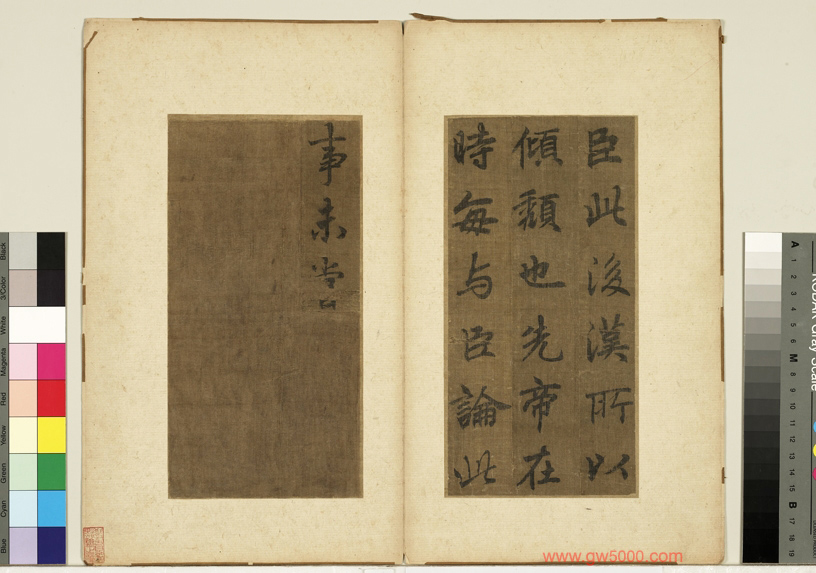 臣此後漢所以
傾頹也先帝在
時每与臣論此
事未甞
www.gw5000.com
Black
3/Color
White
Magenta
Red
Yellow
Green
Cyan
Blue
A
1
2
3
4
5
6
M
8
9
10
11
12
13
14
15
B
17
18
19
KODAK Gray Scale